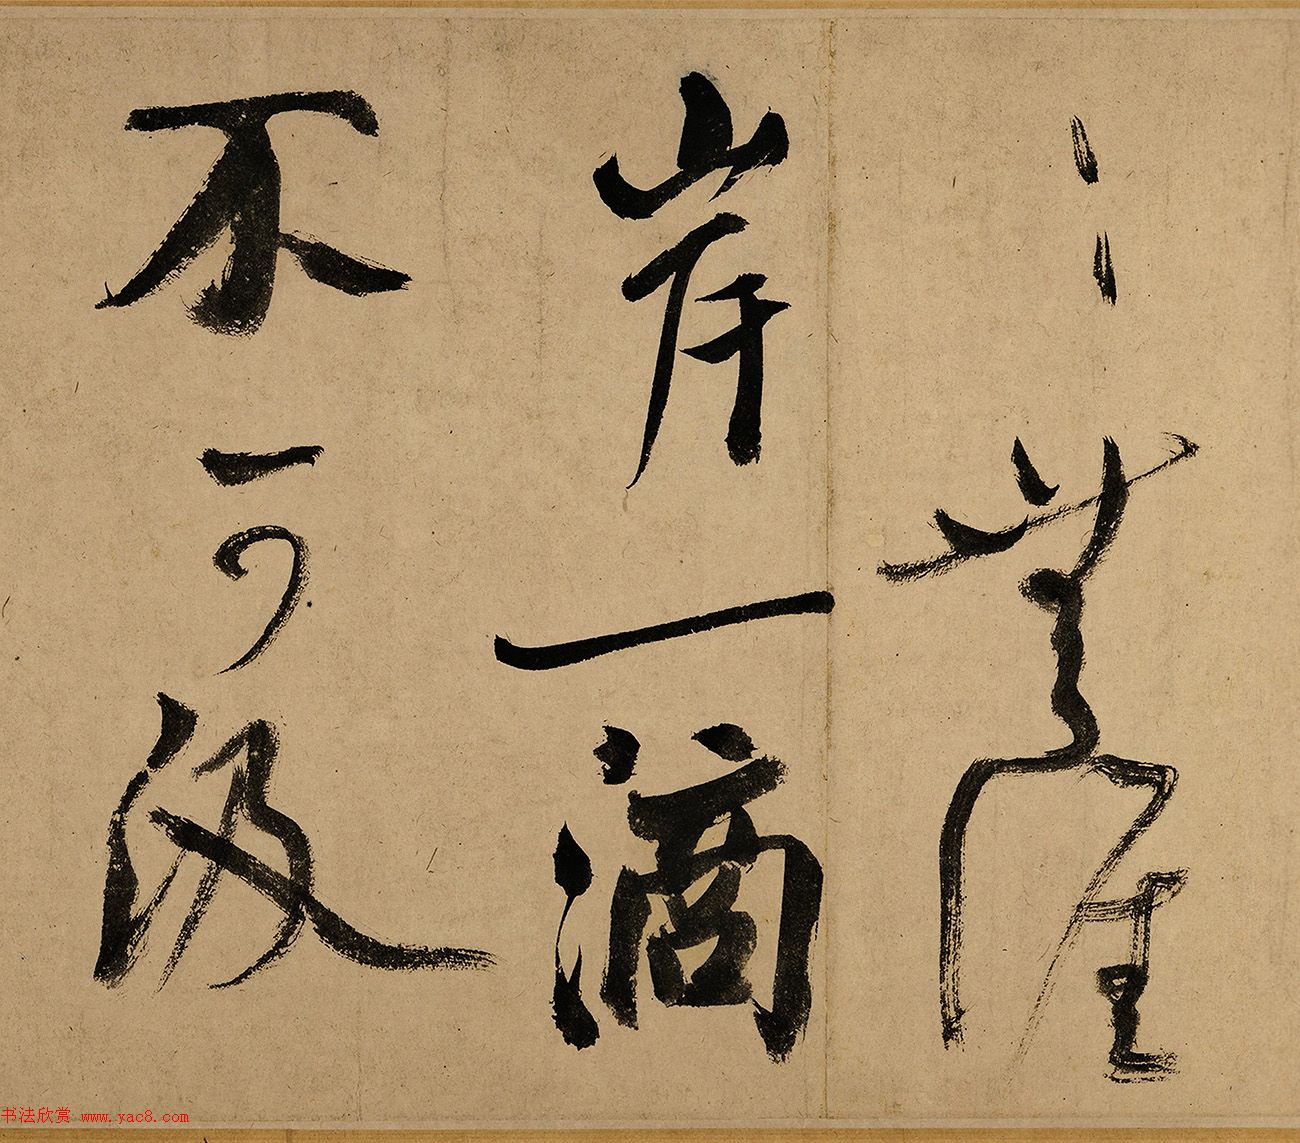 〻無涯
岸一滴
不可汲
书法欣赏 www.yac8.com